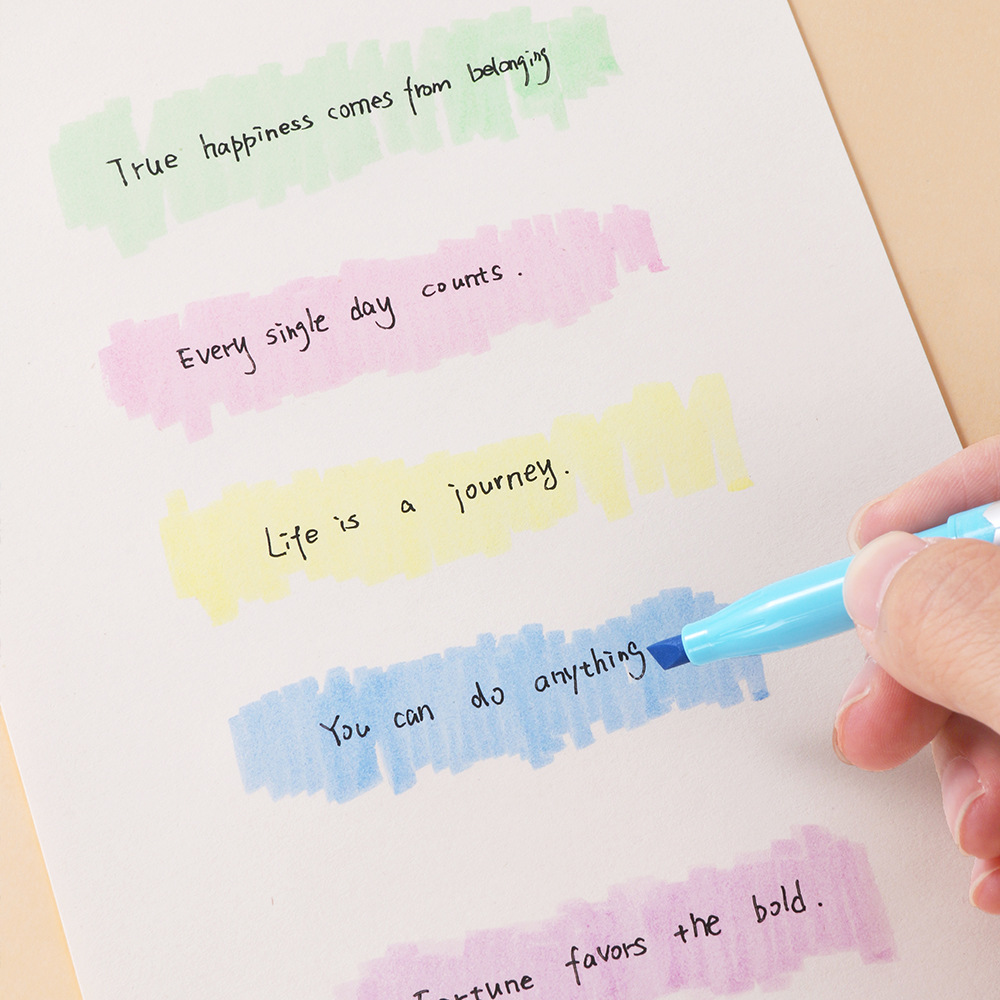 True happiness comes from belonging
Every single day counts.
Life is a journey.
You can do anything
Fortune favors the bold.